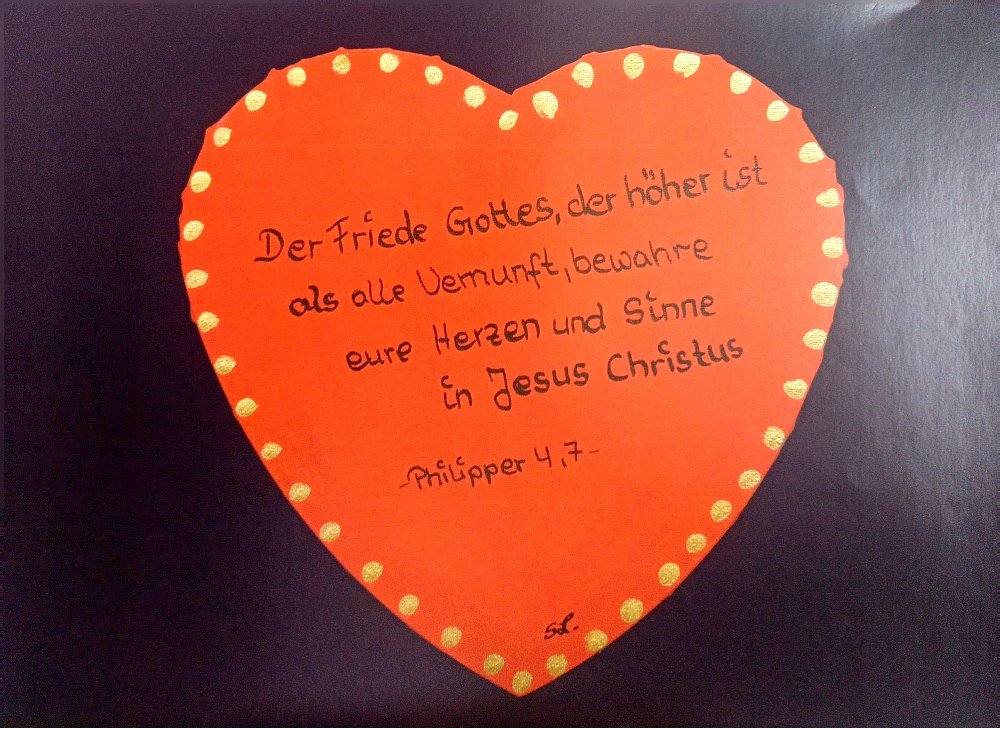 Der Friede Gottes, der höher ist
als alle Vernunft, bewahre
eure Herzen und Sinne
in Jesus Christus
-Philipper 4,7-